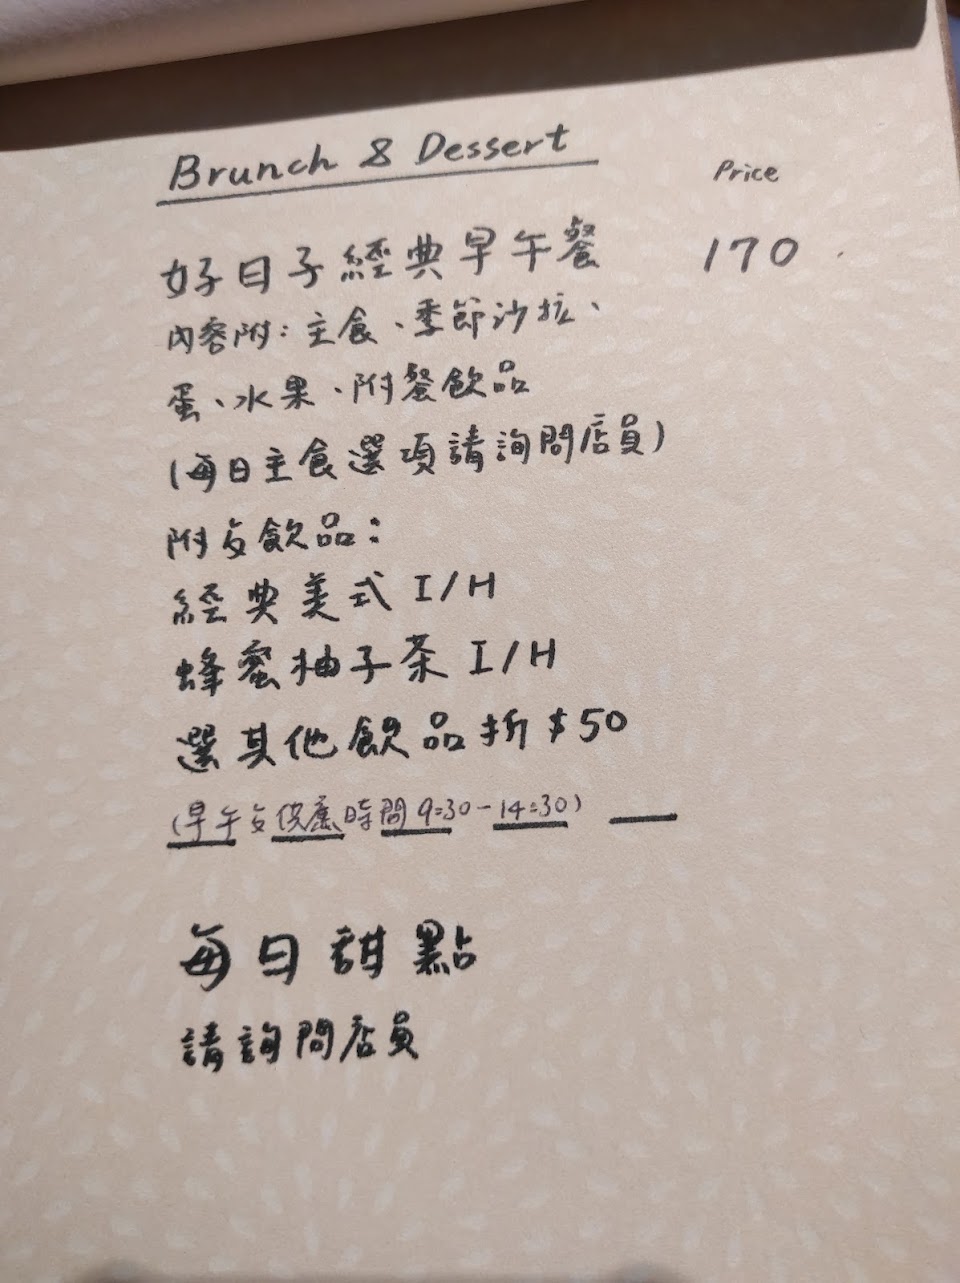 Brunch & Dessert
Price
好日子經典早午餐 170
內容附：主食、季節沙拉、
蛋、水果、附餐飲品
(每日主食選項請詢問店員)
附歺飲品：
經典美式 I/H
蜂蜜柚子茶 I/H
選其他飲品折$50
(早午歺供應時間9:30-14:30)
每日甜點
請詢問店員